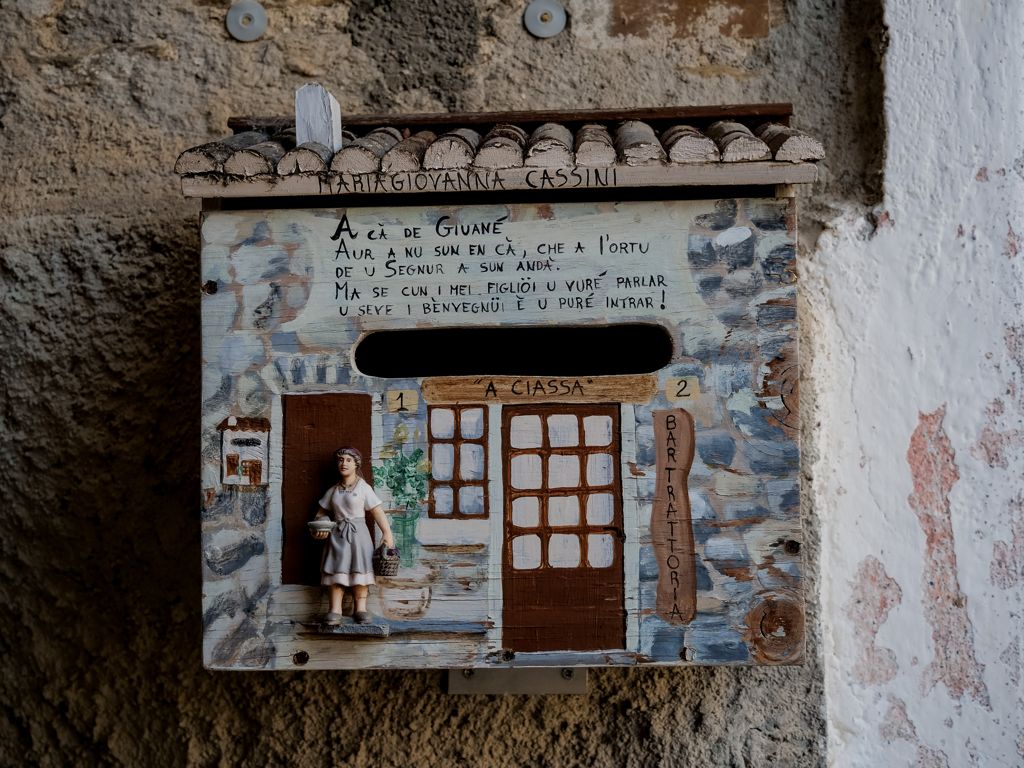 MARIAGIOVANNA CASSINI
A CÀ DE GIUANÉ
AUR A NU SUN EN CÀ, CHE A L'ORTU
DE U SEGNUR A SUN ANDÀ.
MA SE CUN I MEI FIGLIÖI U VURÉ PARLAR
U SEVE I BÈNVEGNÜI E U PURÉ INTRAR!
"A CIASSA"
1
2
BAR TRATTORIA